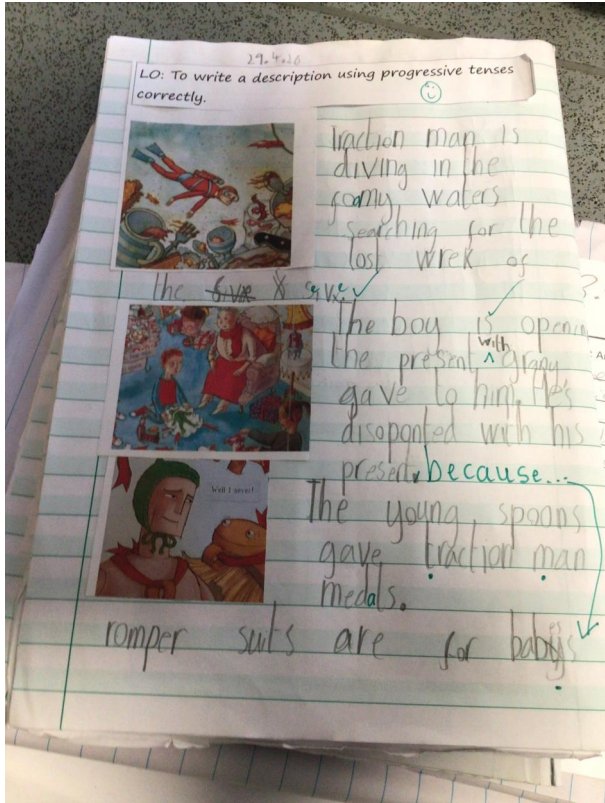 29.4.20
LO: To write a description using progressive tenses
correctly.
Traction man is
diving in the
foamy waters
searching for the
lost wrek of
the
The boy is openin
with
the present ^ grany
gave to him. He's
disoponted with his
present, because...
Well I never!
The young spoons
gave traction man
medals.
romper suits are for babys